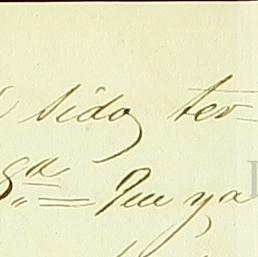 sido ter-
ga= Que ya